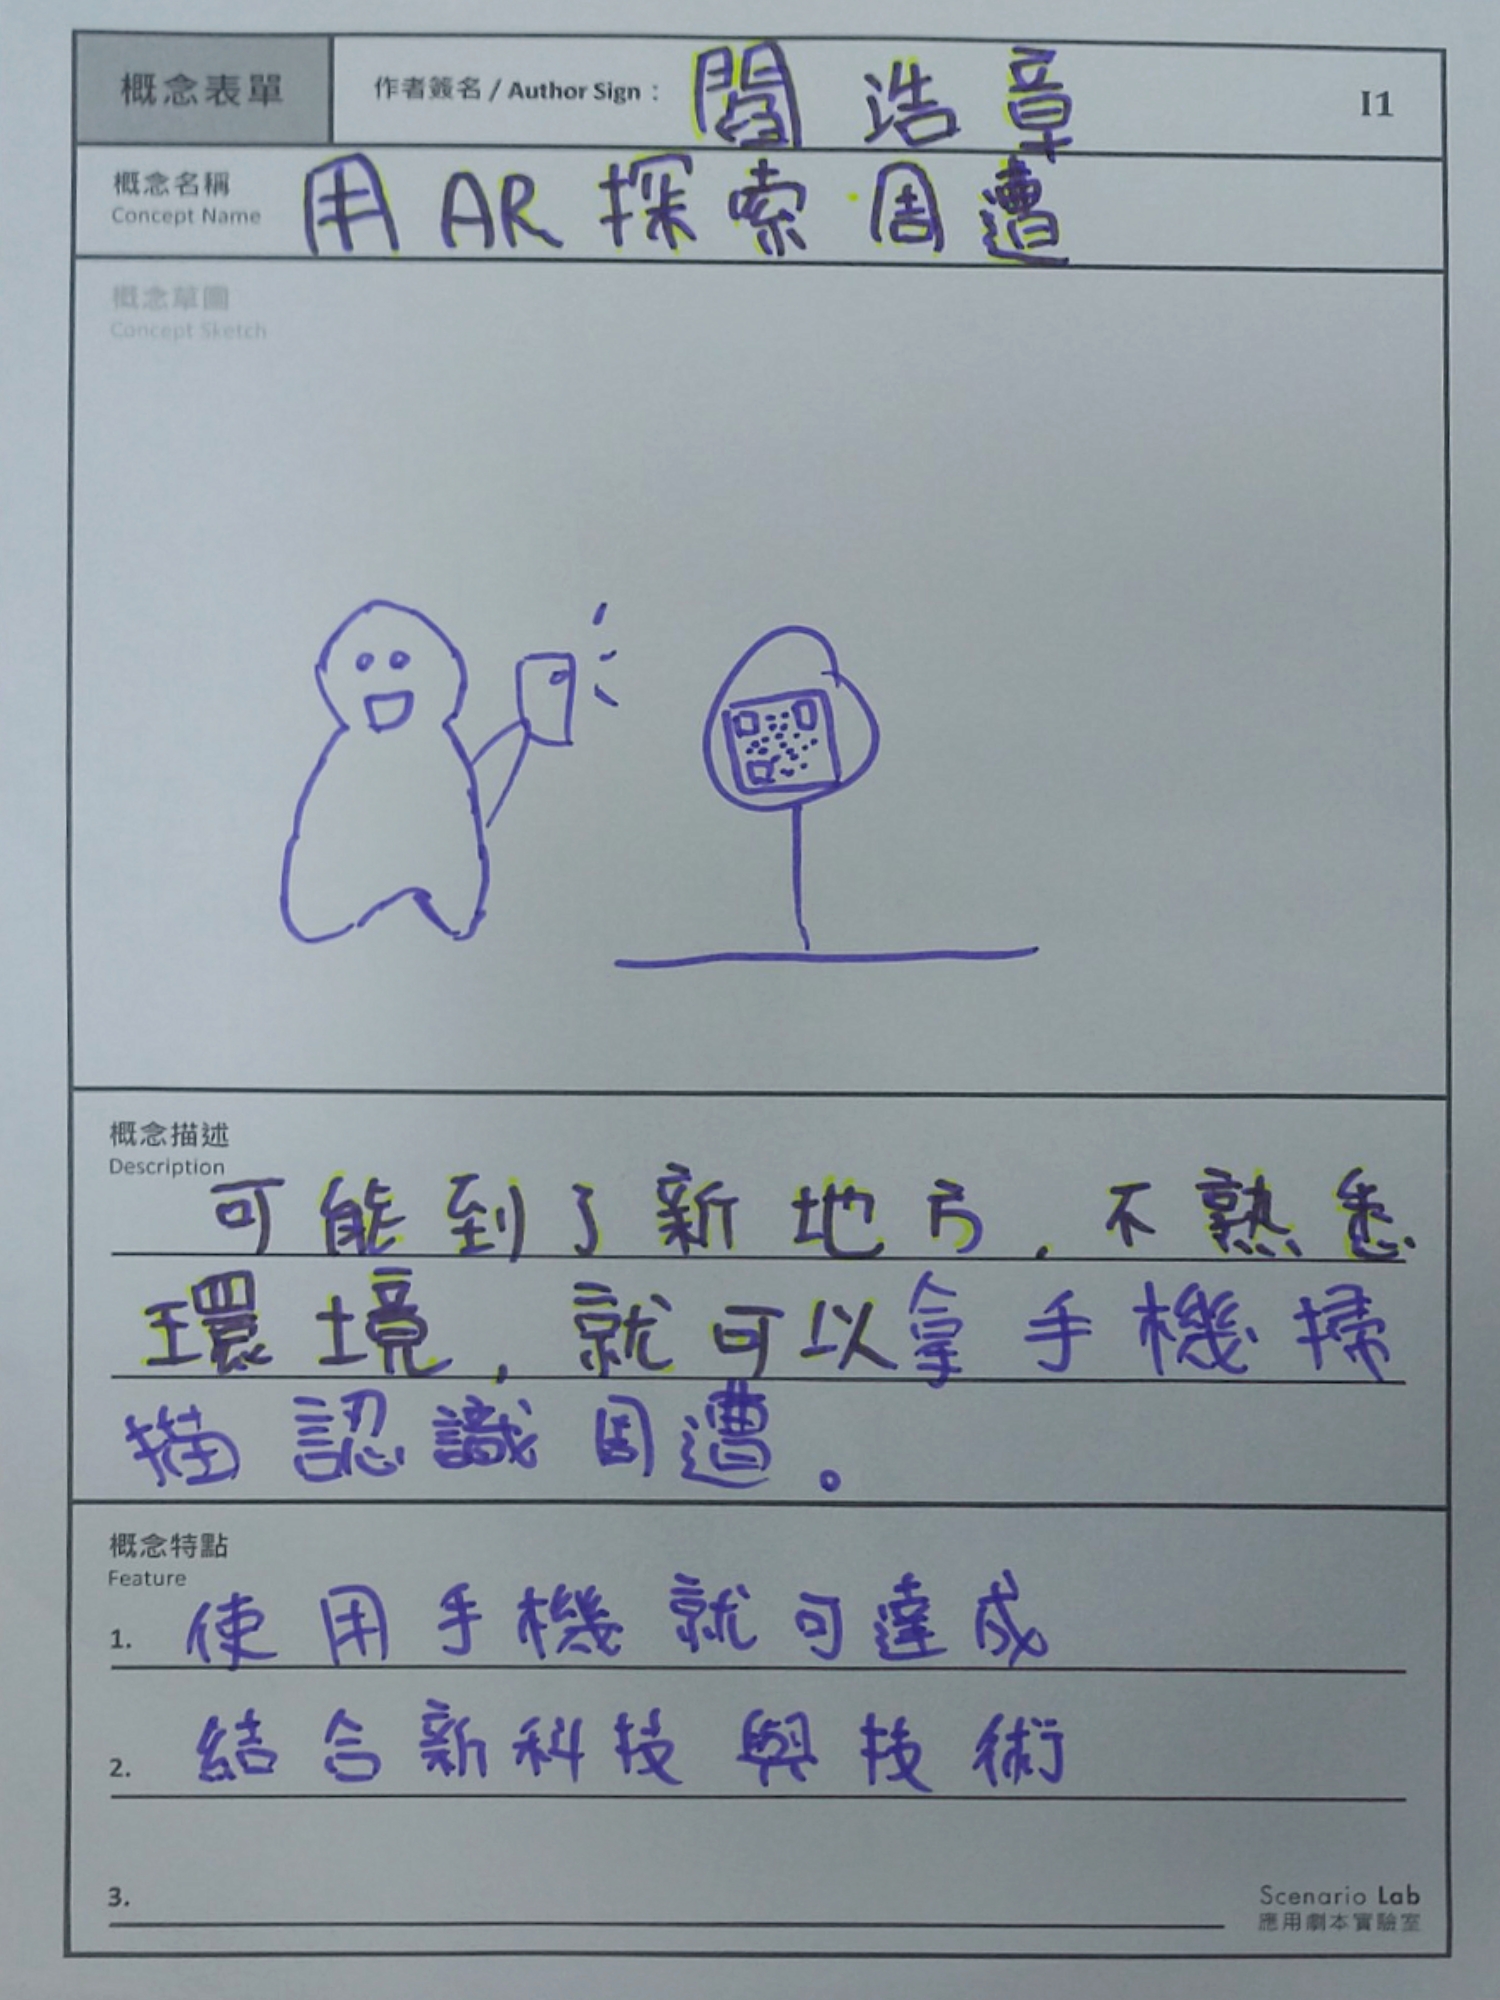 概念表單
作者簽名 / Author Sign : 閻浩章
I1
概念名稱
Concept Name
用AR探索周遭
概念草圖
Concept Sketch
概念描述
Description
可能到了新地方,不熟悉
環境,就可以拿手機掃
描認識周遭。
概念特點
Feature
1. 使用手機就可達成
2. 結合新科技與技術
3.
Scenario Lab
應用劇本實驗室